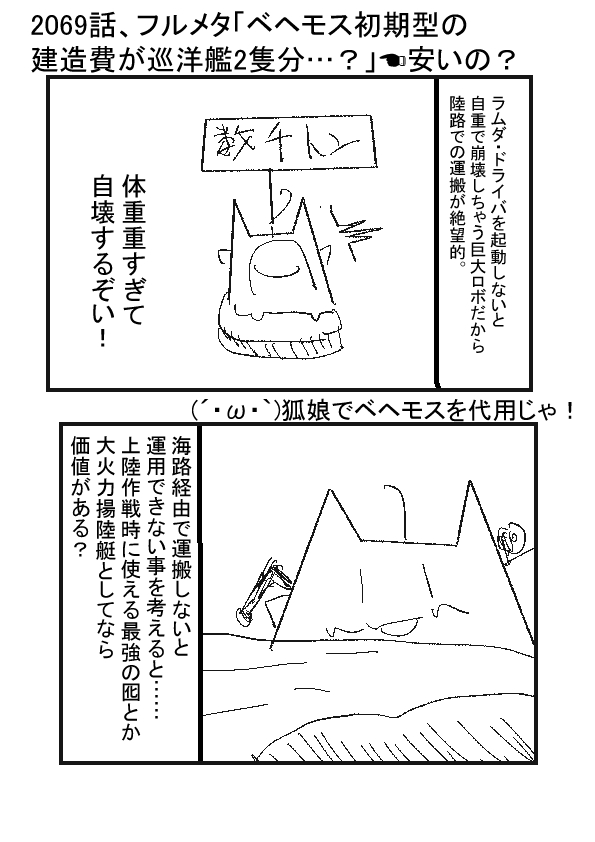 2069話、フルメタ「ベヘモス初期型の
建造費が巡洋艦2隻分…？」☚安いの？
ラムダ・ドライバを起動しないと
自重で崩壊しちゃう巨大ロボだから
陸路での運搬が絶望的。
数千トン
体重重すぎて
自壊するぞい！
(´・ω・`)狐娘でベヘモスを代用じゃ！
海路経由で運搬しないと
運用できない事を考えると……
上陸作戦時に使える最強の囮とか
大火力揚陸艇としてなら
価値がある？